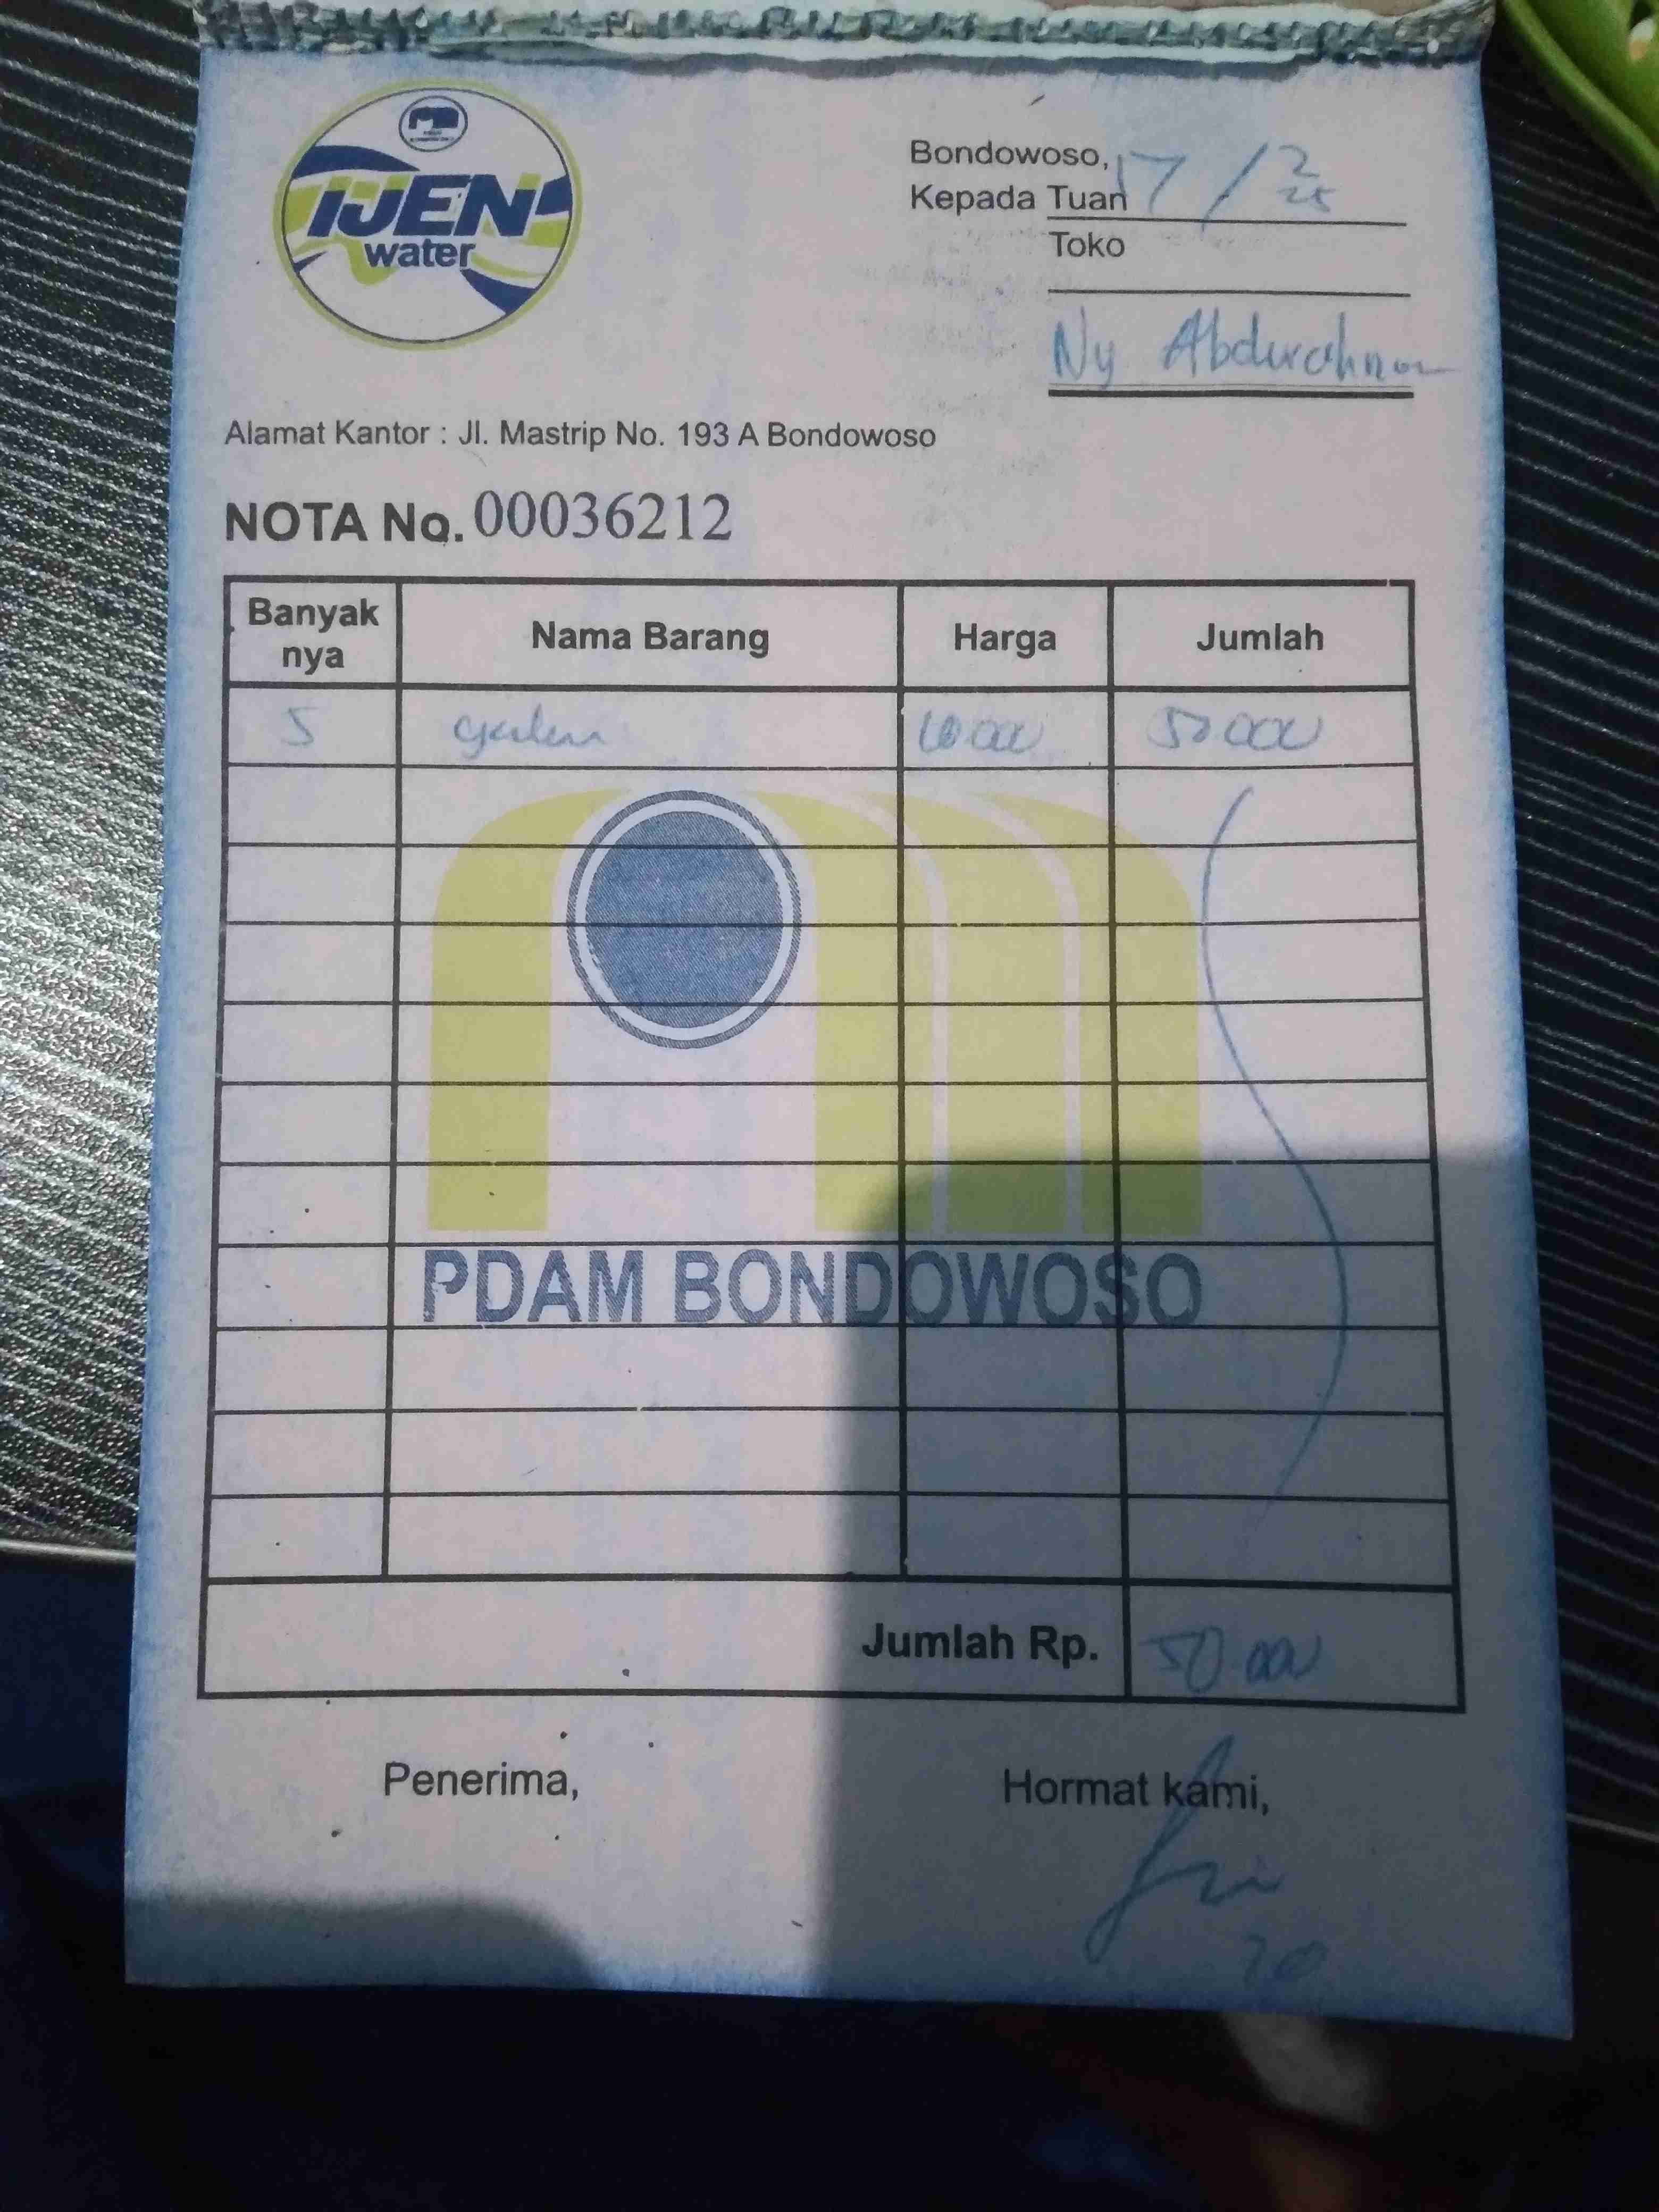 IJEN
water
Bondowoso, 17 / 2 25
Kepada Tuan
Toko
Ny Abdurahman
Alamat Kantor : Jl. Mastrip No. 193 A Bondowoso
NOTA No. 00036212
Banyak nya Nama Barang Harga Jumlah
5 galon 10000 50000
PDAM BONDOWOSO
Jumlah Rp. 50.000
Penerima, Hormat kami,